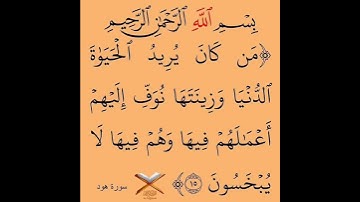 بِسْمِ ٱللَّهِ ٱلرَّحْمَٰنِ ٱلرَّحِيمِ
﴿مَن كَانَ يُرِيدُ ٱلْحَيَوٰةَ
ٱلدُّنْيَا وَزِينَتَهَا نُوَفِّ إِلَيْهِمْ
أَعْمَٰلَهُمْ فِيهَا وَهُمْ فِيهَا لَا
يُبْخَسُونَ ١٥﴾ سورة هود